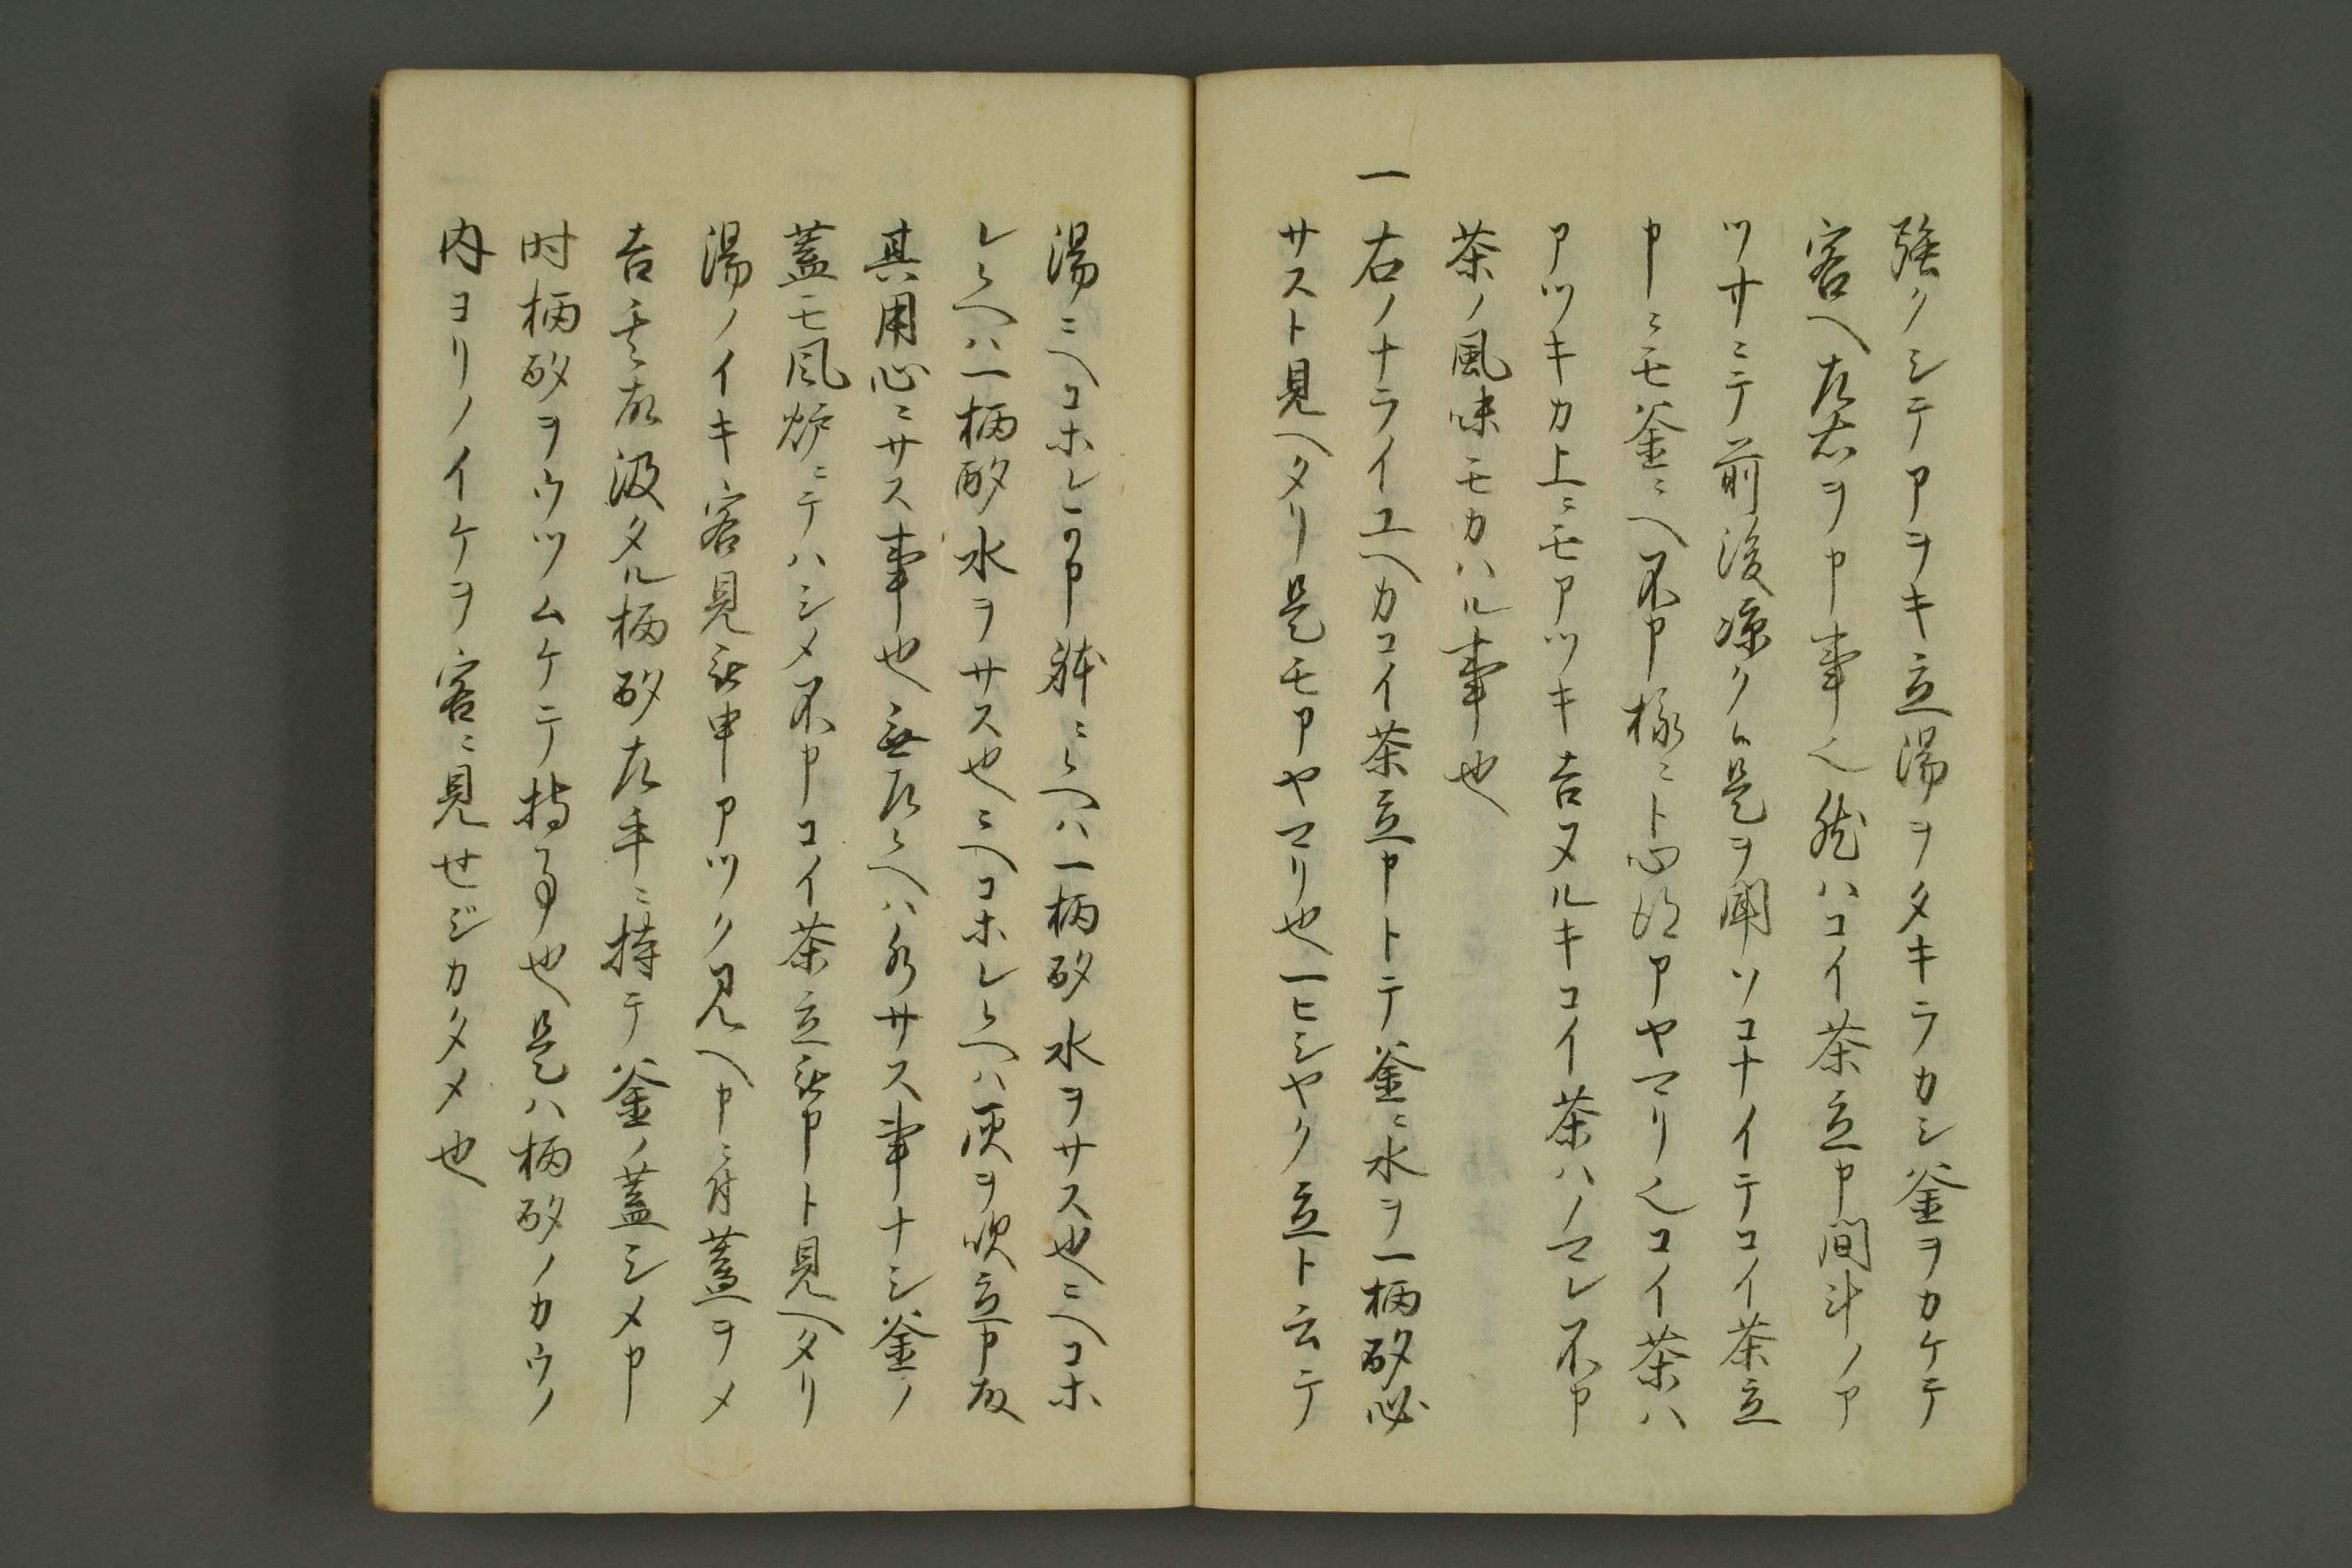 強クシテアヲキ立湯ヲタキラカシ釜ヲカケテ
客ヘ左右ヲ申事也然ハコイ茶立申間斗ノア
ツサニテ前後凉クハ是ヲ聞ソコナイテコイ茶立
申ニモ釜ニヘ不申様ニト心得アヤマリ也コイ茶ハ
アツキカ上ニモアツキ吉ヌルキコイ茶ハノマレ不申
茶ノ風味モカハル事也
一右ノナライユヘカコイ茶立申トテ釜ニ水ヲ一柄杓必
サスト見ヘタリ是モアヤマリ也一ヒシヤク立ト云テ
湯ニヘコホレ可申躰ニ候ヘハ一柄杓水ヲサス也ニヘコホ
レ候ヘハ一柄杓水ヲサス也ニヘコホレ候ヘハ灰ヲ吹立申故
其用心ニサス事也無左候ヘハ水サス事ナシ釜ノ
蓋モ風炉ニテハシメ不申コイ茶立被申ト見ヘタリ
湯ノイキ客見被申アツク見ヘ申ニ付蓋ヲメ
吉其故汲タル柄杓左手ニ持テ釜ノ蓋シメ申
時柄杓ヲウツムケテ持事也是ハ柄杓ノカウノ
内ヨリノイケヲ客ニ見せジカタメ也